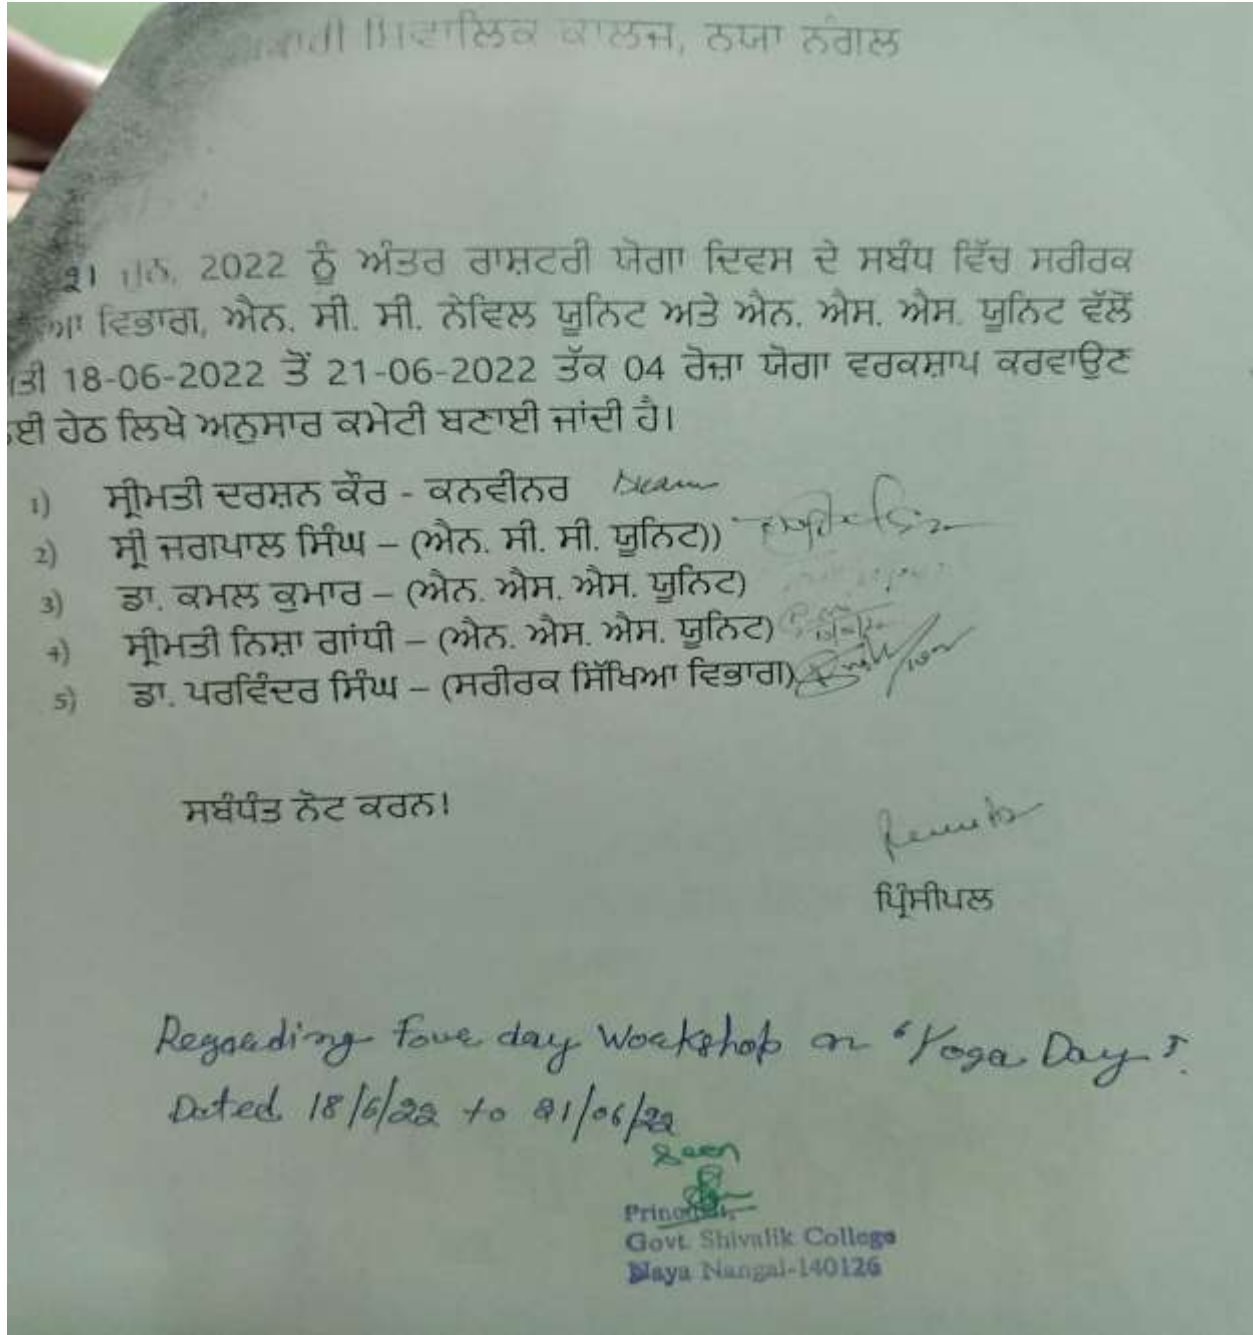 ਸ਼ਿਵਾਲਿਕ ਕਾਲਜ, ਨਯਾ ਨੰਗਲ
21 ਜੂਨ, 2022 ਨੂੰ ਅੰਤਰ ਰਾਸ਼ਟਰੀ ਯੋਗਾ ਦਿਵਸ ਦੇ ਸਬੰਧ ਵਿੱਚ ਸਰੀਰਕ
ਵਿਭਾਗ, ਐਨ. ਸੀ. ਸੀ. ਨੇਵਿਲ ਯੂਨਿਟ ਅਤੇ ਐਨ. ਐਸ. ਐਸ. ਯੂਨਿਟ ਵੱਲੋਂ
ਤੀ 18-06-2022 ਤੋਂ 21-06-2022 ਤੱਕ 04 ਰੋਜ਼ਾ ਯੋਗਾ ਵਰਕਸ਼ਾਪ ਕਰਵਾਉਣ
ਈ ਹੇਠ ਲਿਖੇ ਅਨੁਸਾਰ ਕਮੇਟੀ ਬਣਾਈ ਜਾਂਦੀ ਹੈ।
1) ਸ੍ਰੀਮਤੀ ਦਰਸ਼ਨ ਕੌਰ - ਕਨਵੀਨਰ
2) ਸ੍ਰੀ ਜਗਪਾਲ ਸਿੰਘ – (ਐਨ. ਸੀ. ਸੀ. ਯੂਨਿਟ))
3) ਡਾ. ਕਮਲ ਕੁਮਾਰ – (ਐਨ. ਐਸ. ਐਸ. ਯੂਨਿਟ)
4) ਸ੍ਰੀਮਤੀ ਨਿਸ਼ਾ ਗਾਂਧੀ – (ਐਨ. ਐਸ. ਐਸ. ਯੂਨਿਟ)
5) ਡਾ. ਪਰਵਿੰਦਰ ਸਿੰਘ – (ਸਰੀਰਕ ਸਿੱਖਿਆ ਵਿਭਾਗ)
ਸਬੰਧੰਤ ਨੋਟ ਕਰਨ।
ਪ੍ਰਿੰਸੀਪਲ
Regarding Four day Workshop on "Yoga Day".
Dated 18/6/22 to 21/06/22
Seen
Principal,
Govt. Shivalik College
Naya Nangal-140126